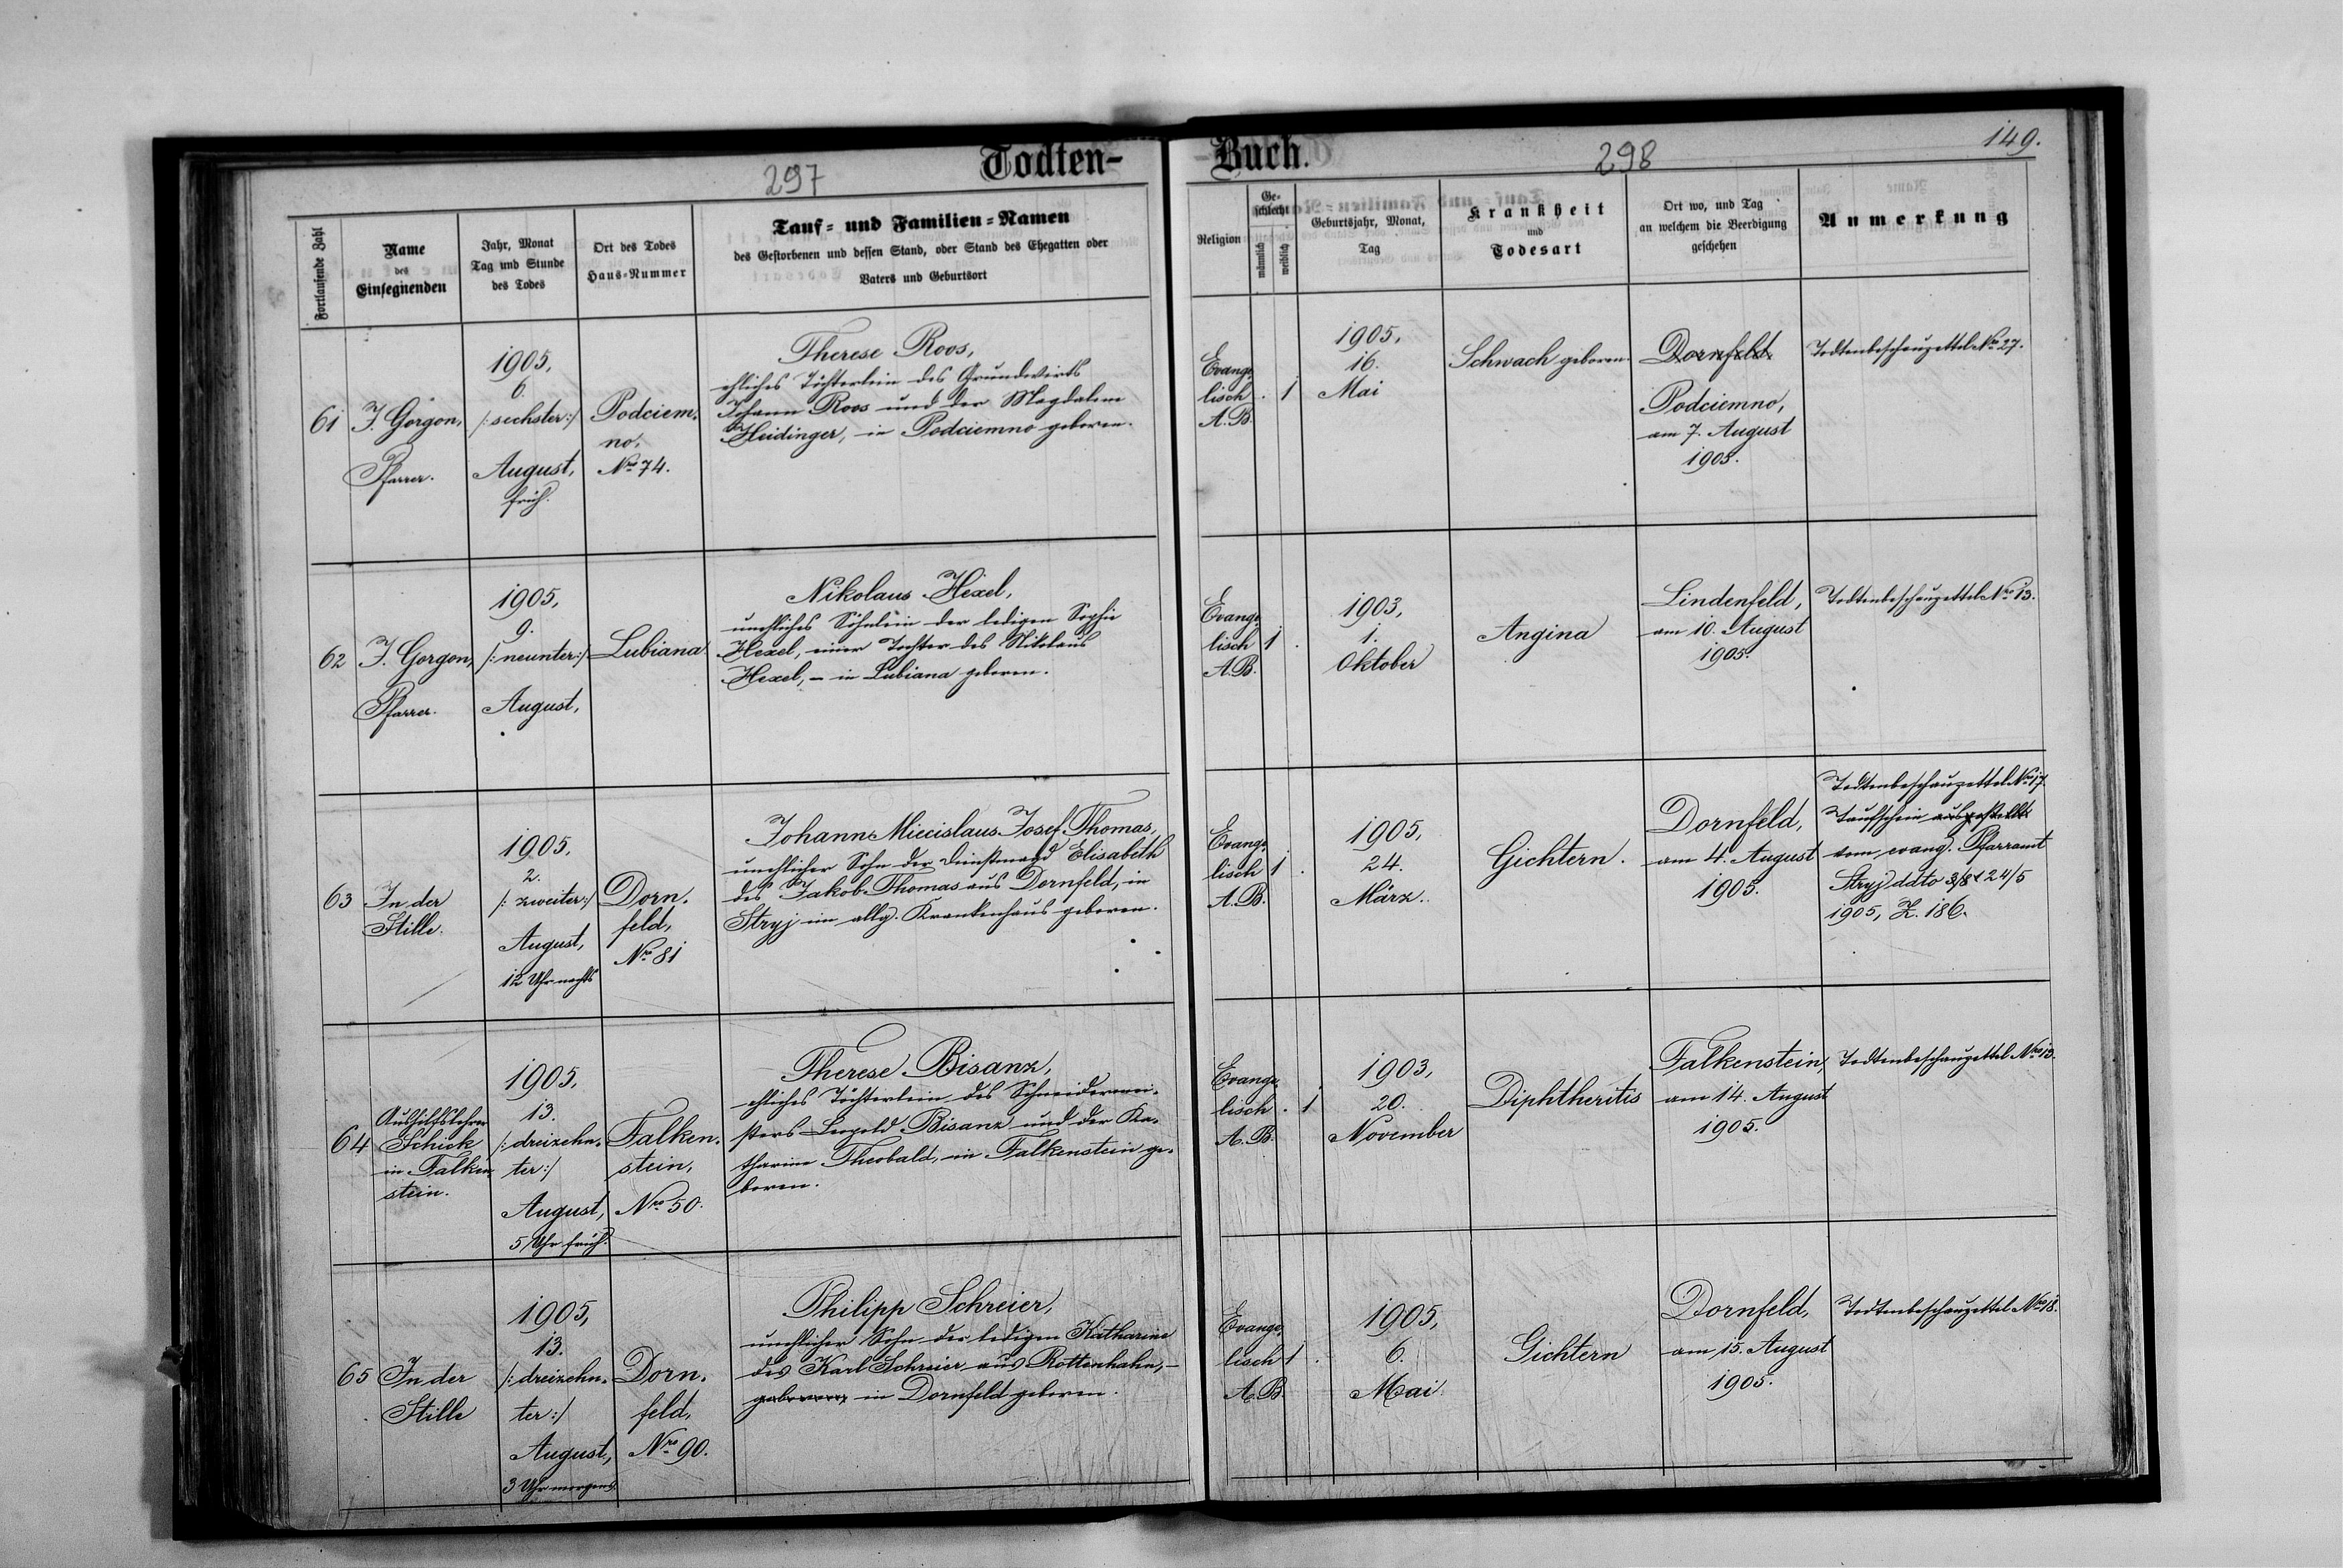 297
Todten-
Fortlaufende Zahl
Name
des
Einsegnenden
Jahr, Monat
Tag und Stunde
des Todes
Ort des Todes
Haus-Nummer
Tauf- und Familien-Namen
des Gestorbenen und dessen Stand, oder Stand des Ehegatten oder
Vaters und Geburtsort
61
J. Gorgon,
Pfarrer.
1905,
6.
/: sechster :/
August,
früh.
Podciem-
no,
Nro 74.
Therese Roos,
eheliches Töchterlein des Grundwirts
Johann Roos und der Magdalene
Heidinger, in Podciemno geboren.
62
J. Gorgon,
Pfarrer.
1905,
9.
/: neunter :/
August,
Lubiana
Nikolaus Hexel,
uneheliches Söhnlein der ledigen Sophie
Hexel, einer Tochter des Nikolaus
Hexel, – in Lubiana geboren.
63
In der
Stille.
1905,
2.
/: zweiter :/
August,
12 Uhr nachts
Dorn-
feld,
Nro 81
Johann Miecislaus Josef Thomas,
unehelicher Sohn der Dienstmagd Elisabeth
des Jakob Thomas aus Dornfeld, in
Stryj im allg. Krankenhaus geboren.
64
Aushilfslehrer
Schick
in Falken-
stein.
1905,
13.
/: dreizehn-
ter :/
August,
5 Uhr früh.
Falken-
stein,
Nro 50.
Therese Bisanz,
eheliches Töchterlein des Schneidermei-
sters Leopold Bisanz und der Ka-
tharine Theobald, in Falkenstein ge-
boren.
65
In der
Stille
1905,
13.
/: dreizehn-
ter :/
August,
3 Uhr morgens.
Dorn-
feld,
Nro 90.
Philipp Schreier,
unehelicher Sohn der ledigen Katharine
des Karl Schreier aus Rottenhahn, –
geboren, in Dornfeld geboren.
Buch.
298
149.
Religion
Ge-
schlecht
männlich
weiblich
Geburtsjahr, Monat,
Tag
Krankheit
und
Todesart
Ort wo, und Tag
an welchem die Beerdigung
geschehen
Anmerkung
Evange-
lisch
A. B.
. 1
1905,
16.
Mai
Schwach geboren.
Dornfeld
Podciemno,
am 7. August
1905.
Todtenbeschauzettel Nro 27.
Evange-
lisch
A. B.
1 .
1903,
1.
Oktober
Angina
Lindenfeld,
am 10. August
1905.
Todtenbeschauzettel Nro 13.
Evange-
lisch
A. B.
1 .
1905,
24.
März.
Gichtern.
Dornfeld,
am 4. August
1905.
Todtenbeschauzettel Nro 17.
Taufschein ausgestellt
vom evang. Pfarramt
Stryj ddto 24/5
1905, Z. 186.
Evange-
lisch
A. B.
. 1
1903,
20.
November
Diphtheritis
Falkenstein,
am 14. August
1905.
Todtenbeschauzettel Nro 13.
Evange-
lisch
A. B.
1 .
1905,
6.
Mai
Gichtern
Dornfeld,
am 15. August
1905.
Todtenbeschauzettel Nro 18.